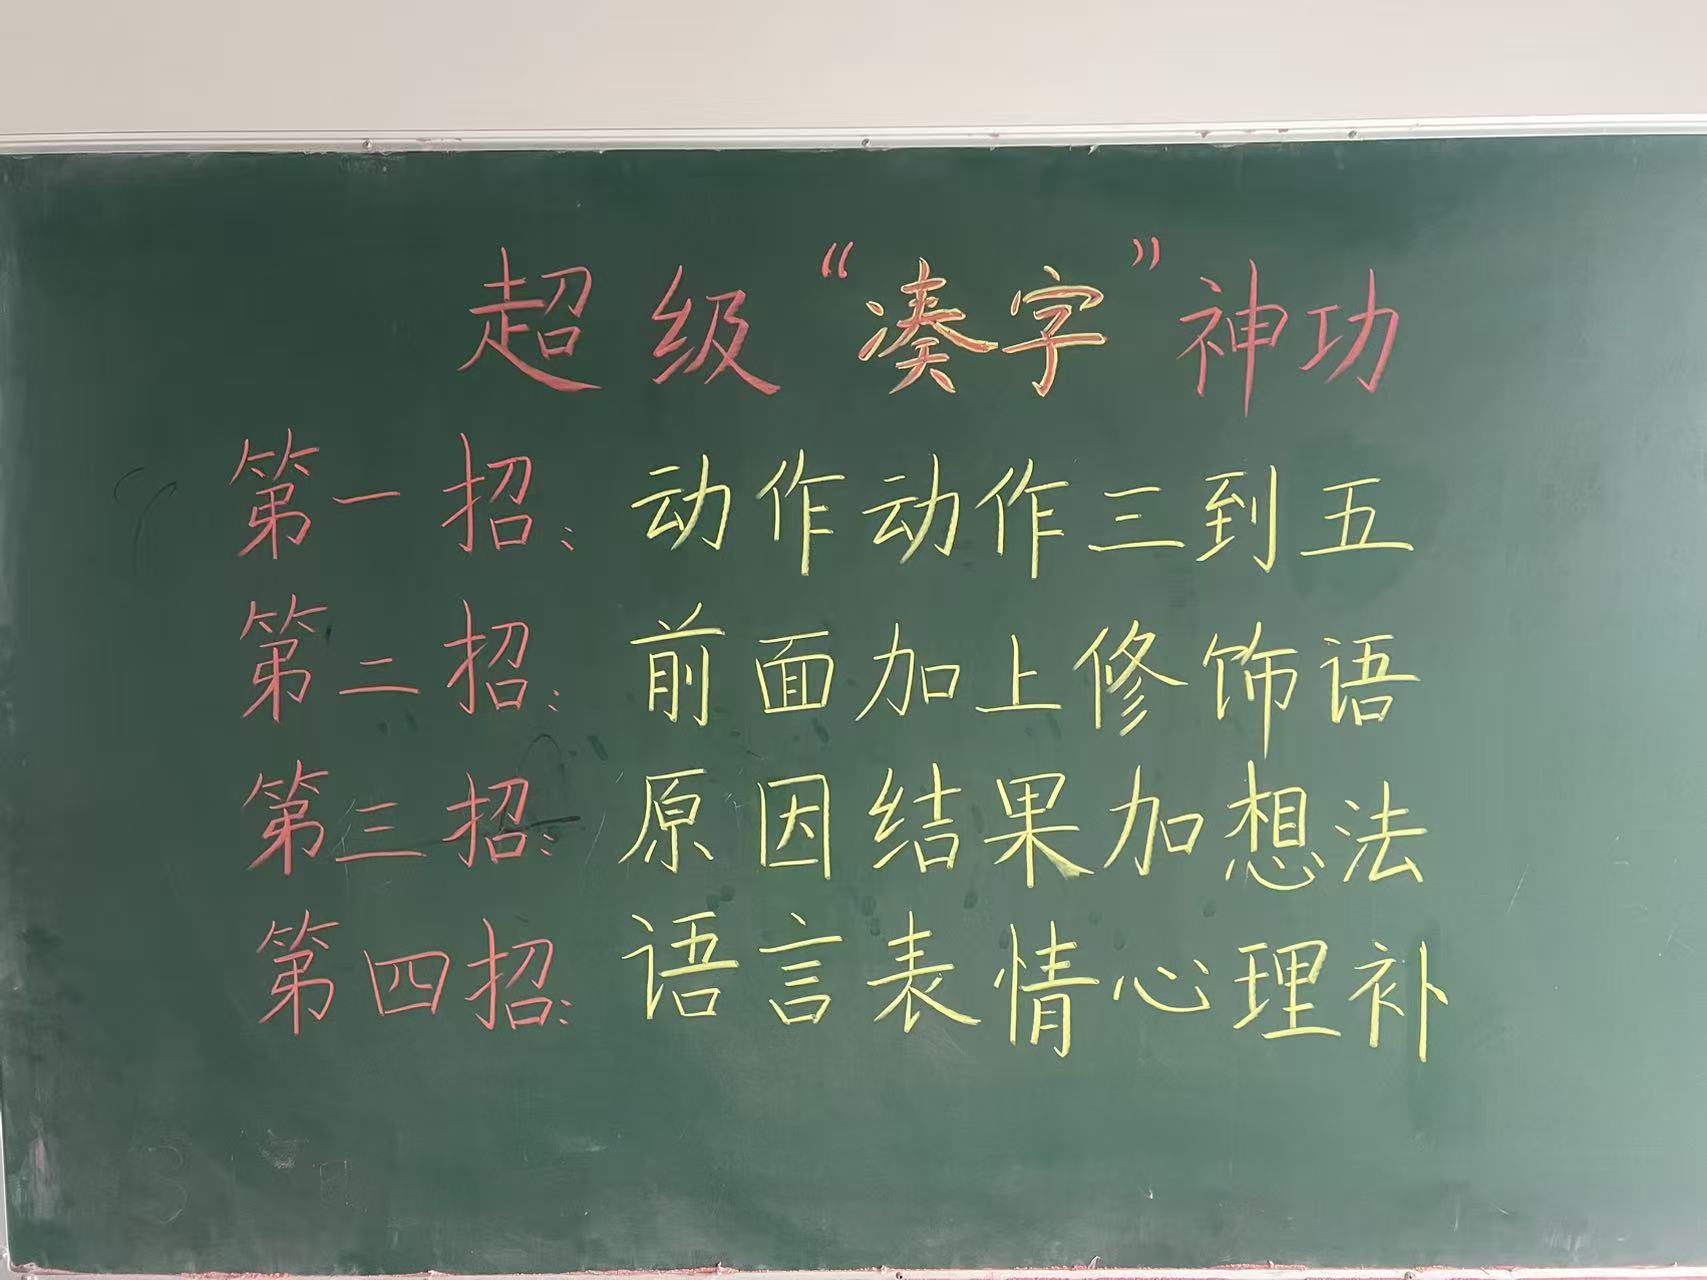 超级“凑字”神功
第一招：动作动作三到五
第二招：前面加上修饰语
第三招：原因结果加想法
第四招：语言表情心理补